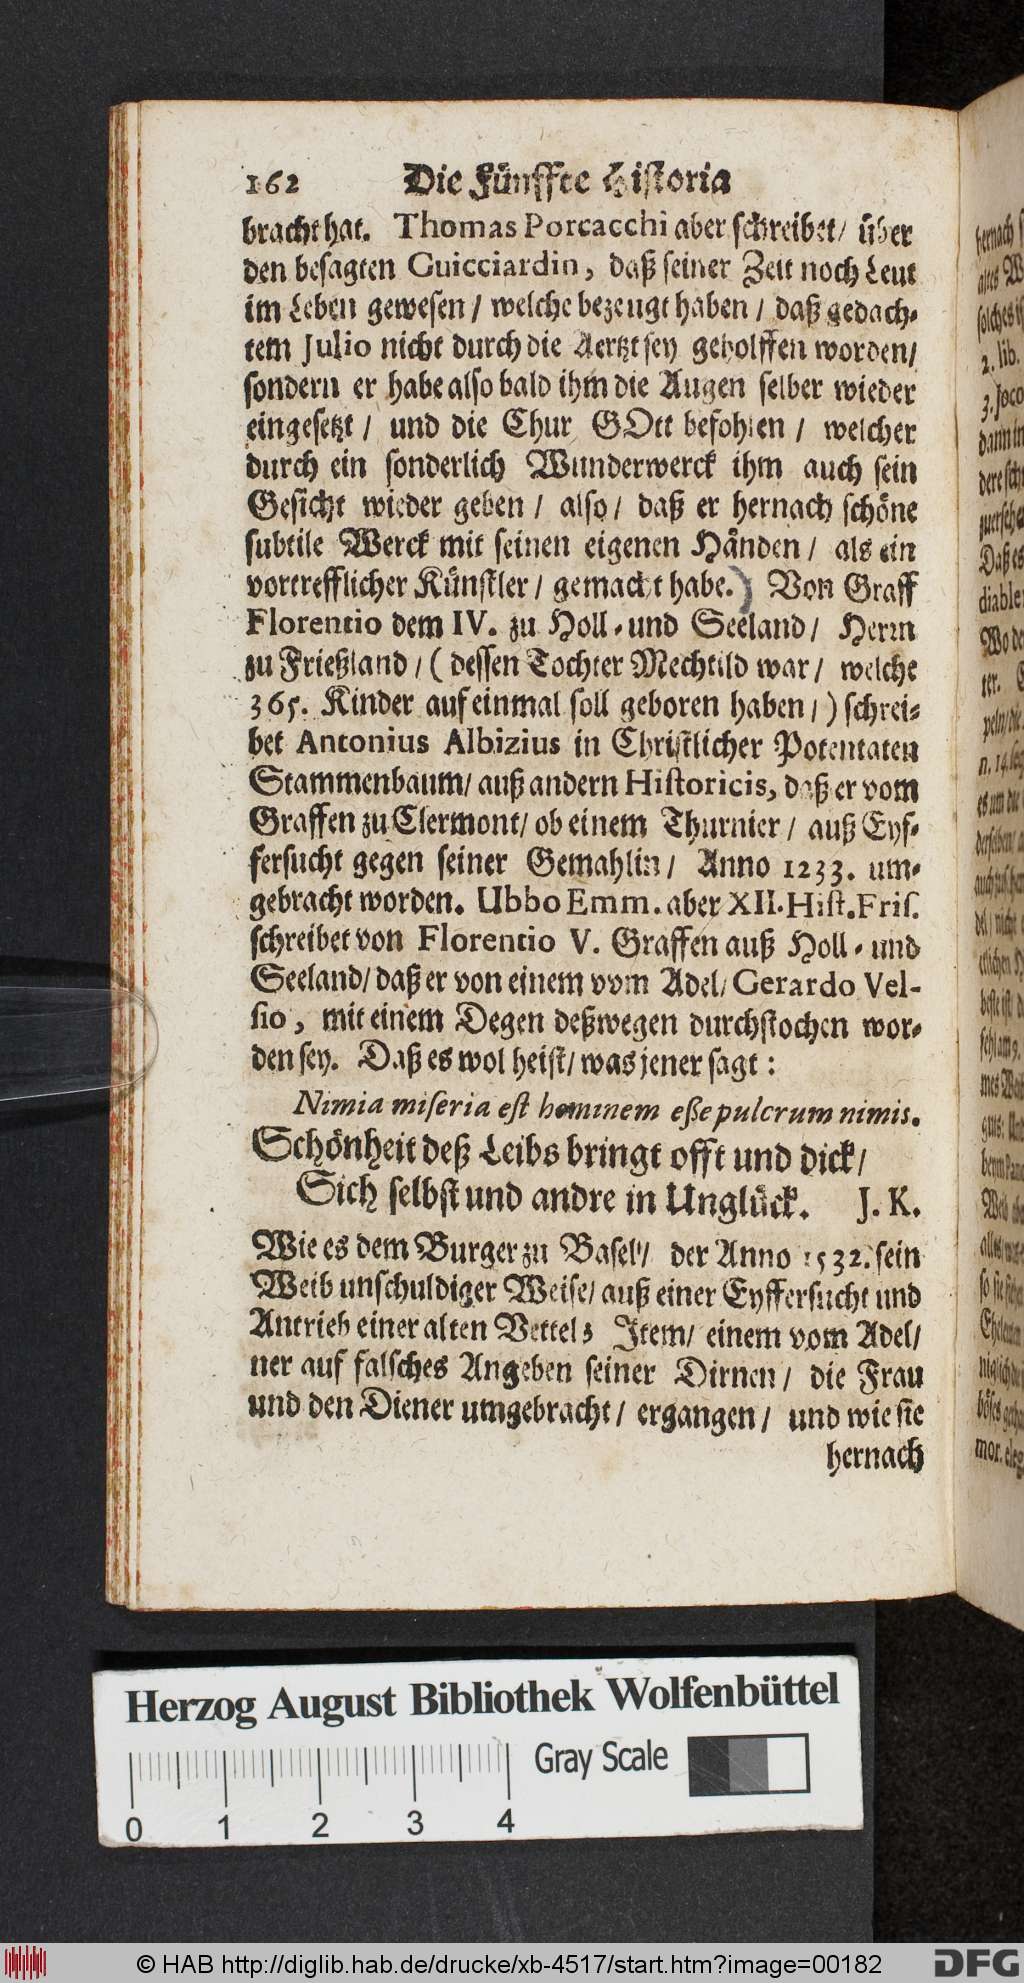 162 Die Fünffte Historia
bracht hat. Thomas Porcacchi aber schreibet/ über
den besagten Guicciardin, daß seiner Zeit noch Leut
im Leben gewesen / welche bezeugt haben / daß gedach-
tem Julio nicht durch die Aertzt sey geholffen worden/
sondern er habe also bald ihm die Augen selber wieder
eingesetzt / und die Chur GOtt befohlen / welcher
durch ein sonderlich Wunderwerck ihm auch sein
Gesicht wieder geben / also / daß er hernach schöne
subtile Werck mit seinen eigenen Händen / als ein
vortrefflicher Künstler / gemacht habe.) Von Graff
Florentio dem IV. zu Holl- und Seeland / Herrn
zu Frießland / ( dessen Tochter Mechtild war / welche
365. Kinder auf einmal soll geboren haben / ) schrei-
bet Antonius Albizius in Christlicher Potentaten
Stammenbaum / auß andern Historicis, daß er vom
Graffen zu Clermont / ob einem Thurnier / auß Eyf-
fersucht gegen seiner Gemahlin / Anno 1233. um-
gebracht worden. Ubbo Emm. aber XII. Hist. Fris.
schreibet von Florentio V. Graffen auß Holl- und
Seeland / daß er von einem vom Adel / Gerardo Vel-
sio, mit einem Degen deßwegen durchstochen wor-
den sey. Daß es wol heist / was jener sagt :
Nimia miseria est hominem eße pulcrum nimis.
Schönheit deß Leibs bringt offt und dick /
Sich selbst und andre in Unglück. J. K.
Wie es dem Burger zu Basel / der Anno 1532. sein
Weib unschuldiger Weise / auß einer Eyffersucht und
Antrieb einer alten Vettel; Item / einem vom Adel /
ner auf falsches Angeben seiner Dirnen / die Frau
und den Diener umgebracht / ergangen / und wie sie
hernach
Herzog August Bibliothek Wolfenbüttel
Gray Scale
0 1 2 3 4
© HAB http://diglib.hab.de/drucke/xb-4517/start.htm?image=00182
DFG